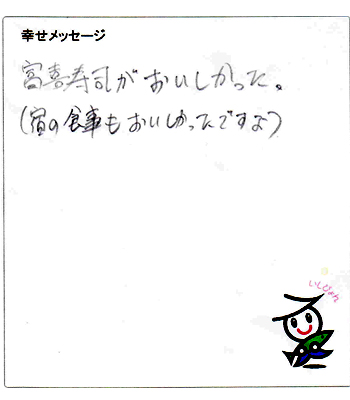 幸せメッセージ
富喜寿司がおいしかった。
(宿の食事もおいしかったですよ)
いしぴょん